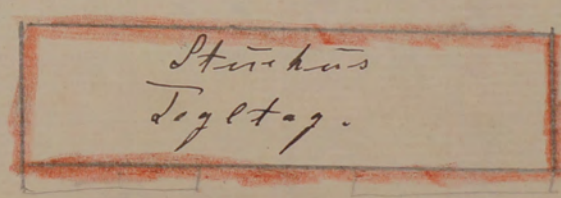 Stuehus
Tegltag.